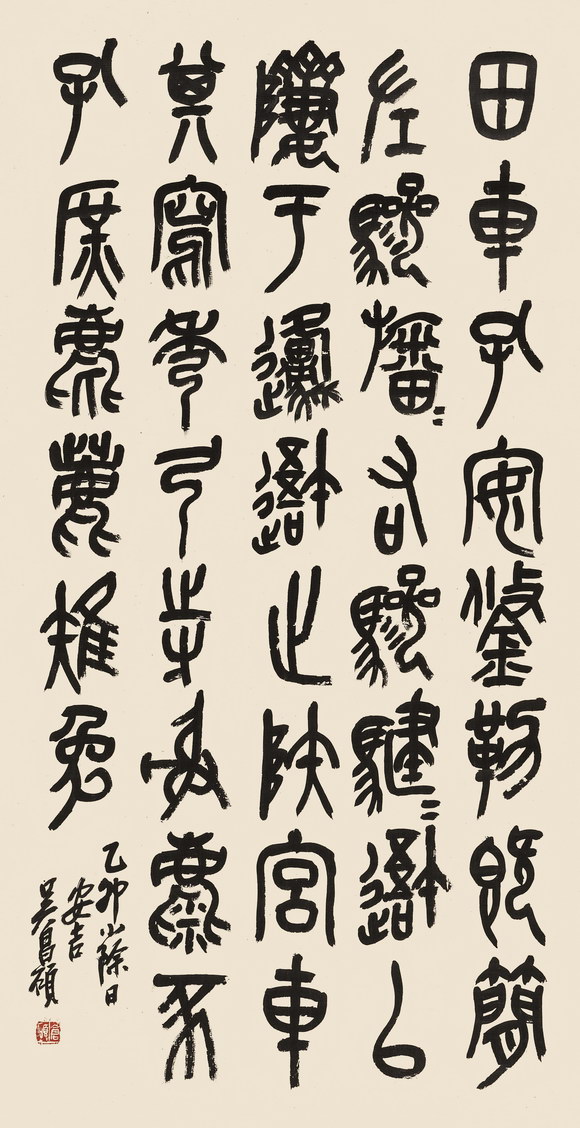 田車孔安鋚勒既簡
左驂旛=右驂騝=吾以
隮于邍吾止陝宮車
其寫秀弓寺射麋豕
孔庶麀鹿雉兔
乙卯小除日
安吉
吳昌碩